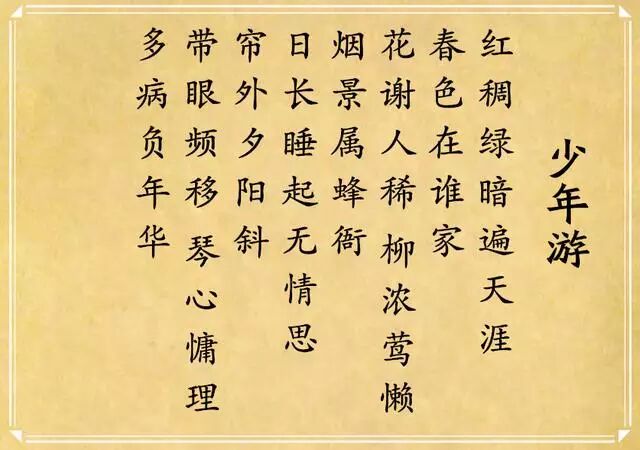 少年游
红稠绿暗遍天涯
春色在谁家
花谢人稀 柳浓莺懒
烟景属蜂衙
日长睡起无情思
帘外夕阳斜
带眼频移 琴心慵理
多病负年华